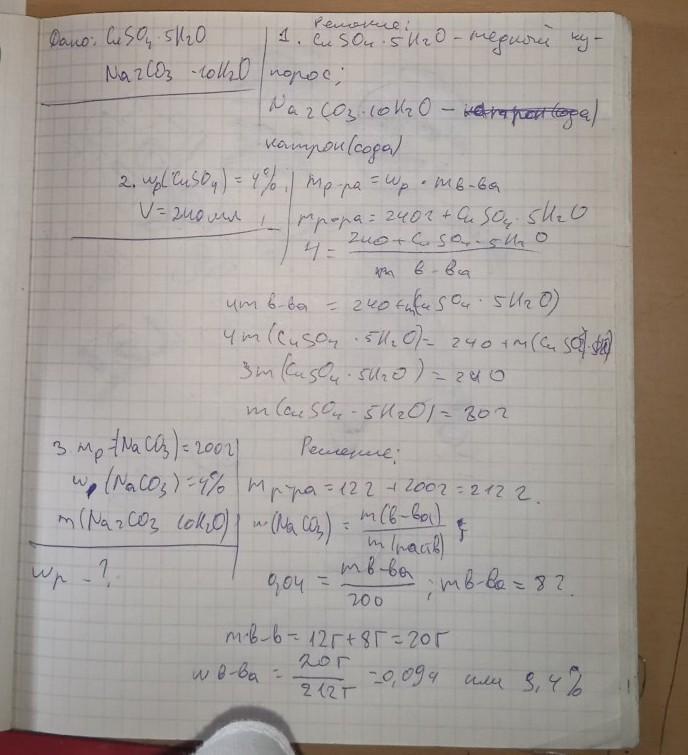 Решение:
Дано: CuSO4·5H2O
Na2CO3·10H2O
1. CuSO4·5H2O - медный ку-
порос;
Na2CO3·10H2O -
натрон(сода)
2. wр(CuSO4) = 4%,
V = 240 мл,
mр-ра = wр · mв-ва
mр-ра = 240г + CuSO4·5H2O
4 = 240 + CuSO4·5H2O / m в-ва
4m в-ва = 240 + m(CuSO4·5H2O)
4m(CuSO4·5H2O) = 240 + m(CuSO4·5H2O)
3m(CuSO4·5H2O) = 240
m(CuSO4·5H2O) = 80г
3. mр-(NaCO3) = 200г
wр(NaCO3) = 4%
m(Na2CO3 10H2O)
wр - ?
Решение:
mр-ра = 12г + 200г = 212г.
w(NaCO3) = m(в-ва) / m(раств);
0,04 = mв-ва / 200; mв-ва = 8г.
mв-в = 12г + 8г = 20г
wв-ва = 20г / 212г = 0,094 или 9,4%